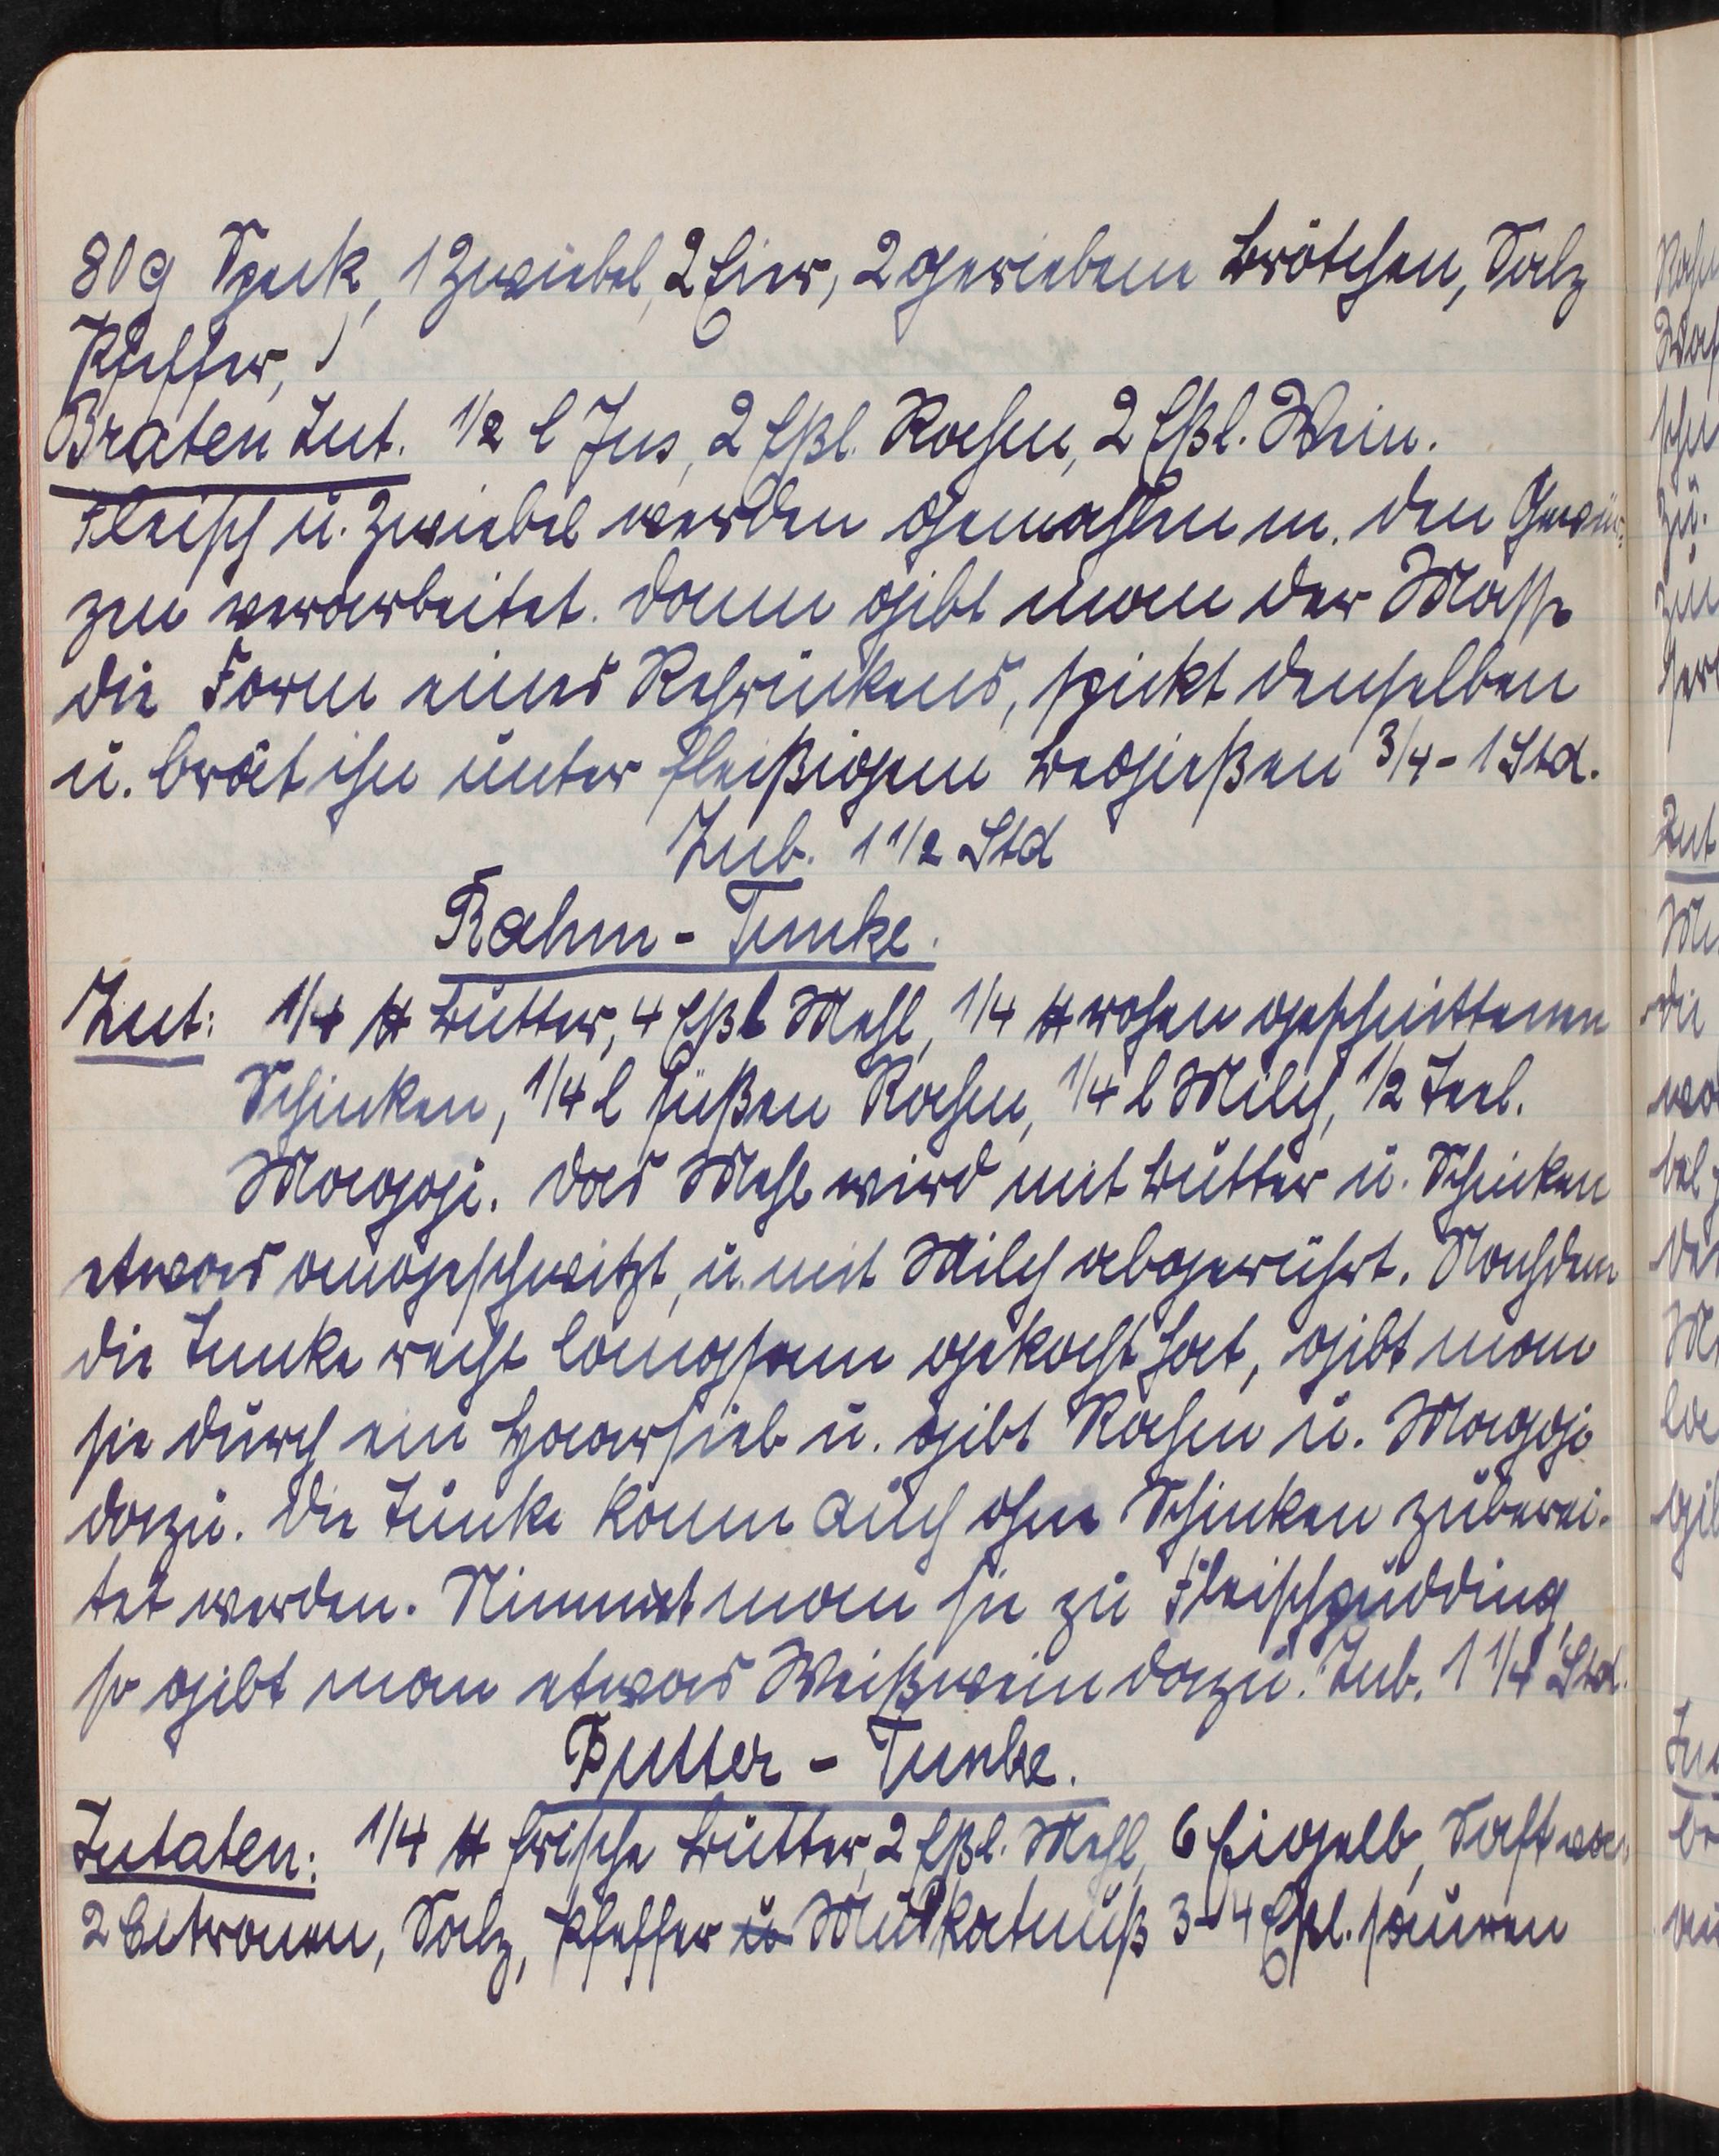 80 g Speck, 1 Zwiebel, 2 Eier, 2 geriebene Brötchen, Salz
Pfeffer,
Braten Zut. 1/2 l Jus, 2 Eßl. Rahm, 2 Eßl. Wein.
Fleisch u. Zwiebel werden gemahlen m. den Gewür-
zen verarbeitet. Dann gibt man der Masse
die Form eines Rehrückens, spickt denselben
u. brät ihn unter fleißigem Begießen 3/4 - 1 Std.
Zub. 1 1/2 Std
Rahm - Tunke.
Zut: 1/4 ℔ Butter, 4 Eßl Mehl, 1/4 ℔ rohen geschnittenen
Schinken, 1/4 l süßen Rahm, 1/4 l Milch, 1/2 Teel.
Maggi. Das Mehl wird mit Butter u. Schinken
etwas angeschwitzt, u. mit Milch abgerührt. Nachdem
die Tunke recht langsam gekocht hat, gibt man
sie durch ein Haarsieb u. gibt Rahm u. Maggi
dazu. Die Tunke kann auch ohne Schinken zuberei-
tet werden. Nimmt man sie zu Fleischpudding,
so gibt man etwas Weißwein dazu. Zub. 1 1/4 Std.
Butter - Tunke.
Zutaten: 1/4 ℔ frische Butter, 2 Eßl. Mehl, 6 Eigelb, Saft von
2 Citronen, Salz, Pfeffer u Muskatnuß 3-4 Eßl. sauren